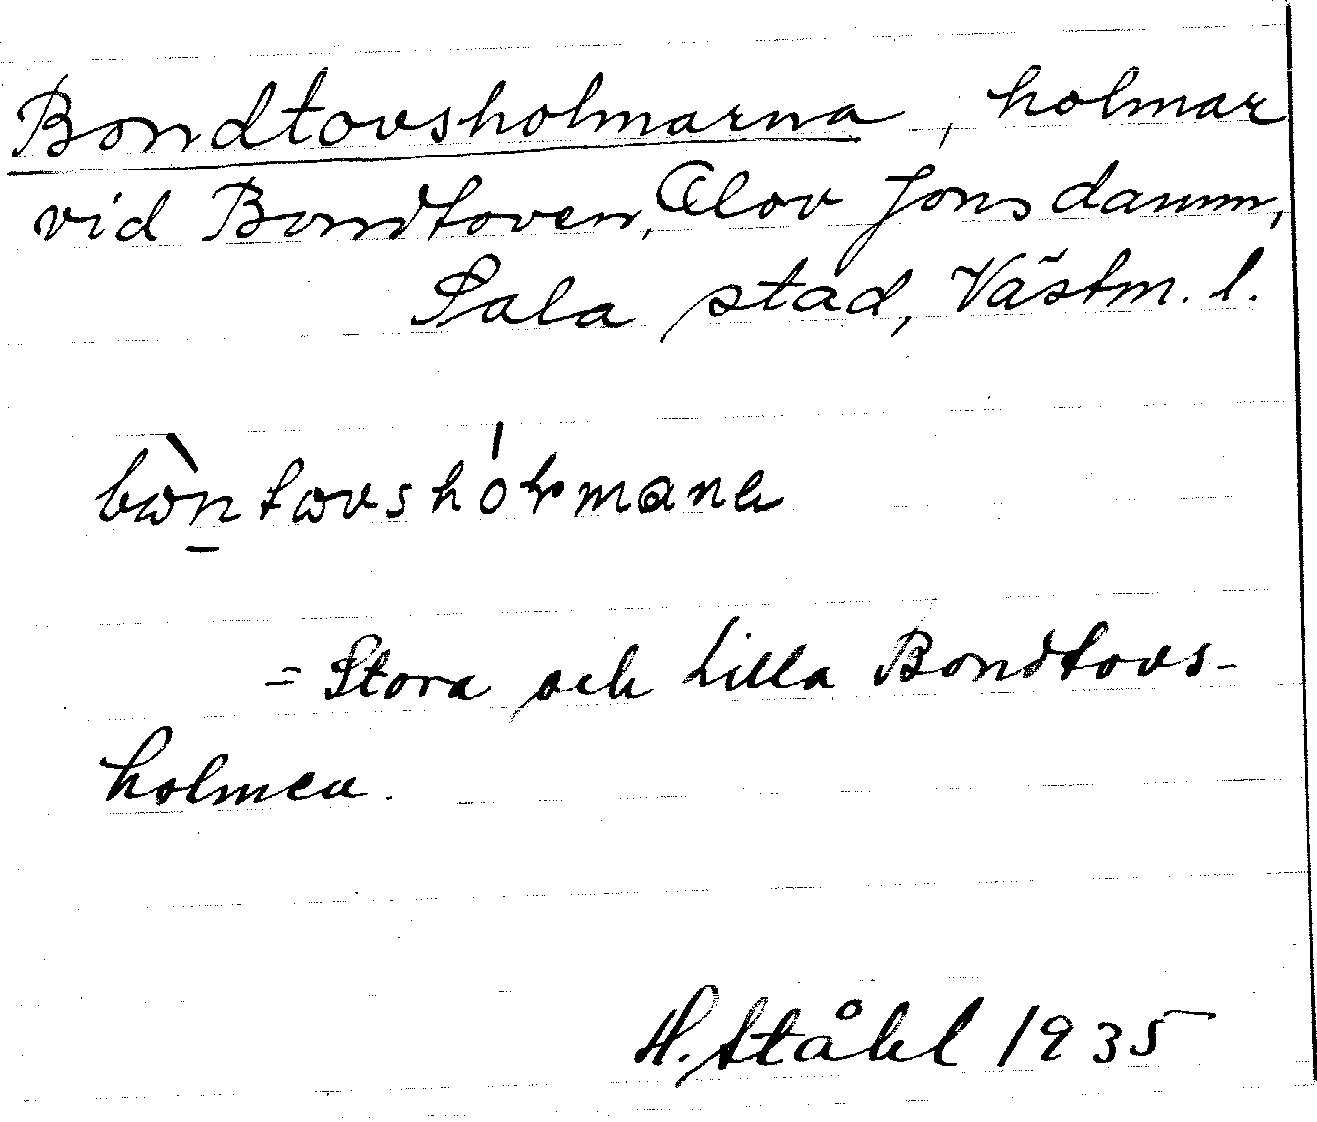 Bondtovsholmarna, holmar
vid Bondtoven, Olov Jons damm,
Sala stad, Västm. l.
= Stora och Lilla Bondtovs-
holmen.
H. Ståhl 1935